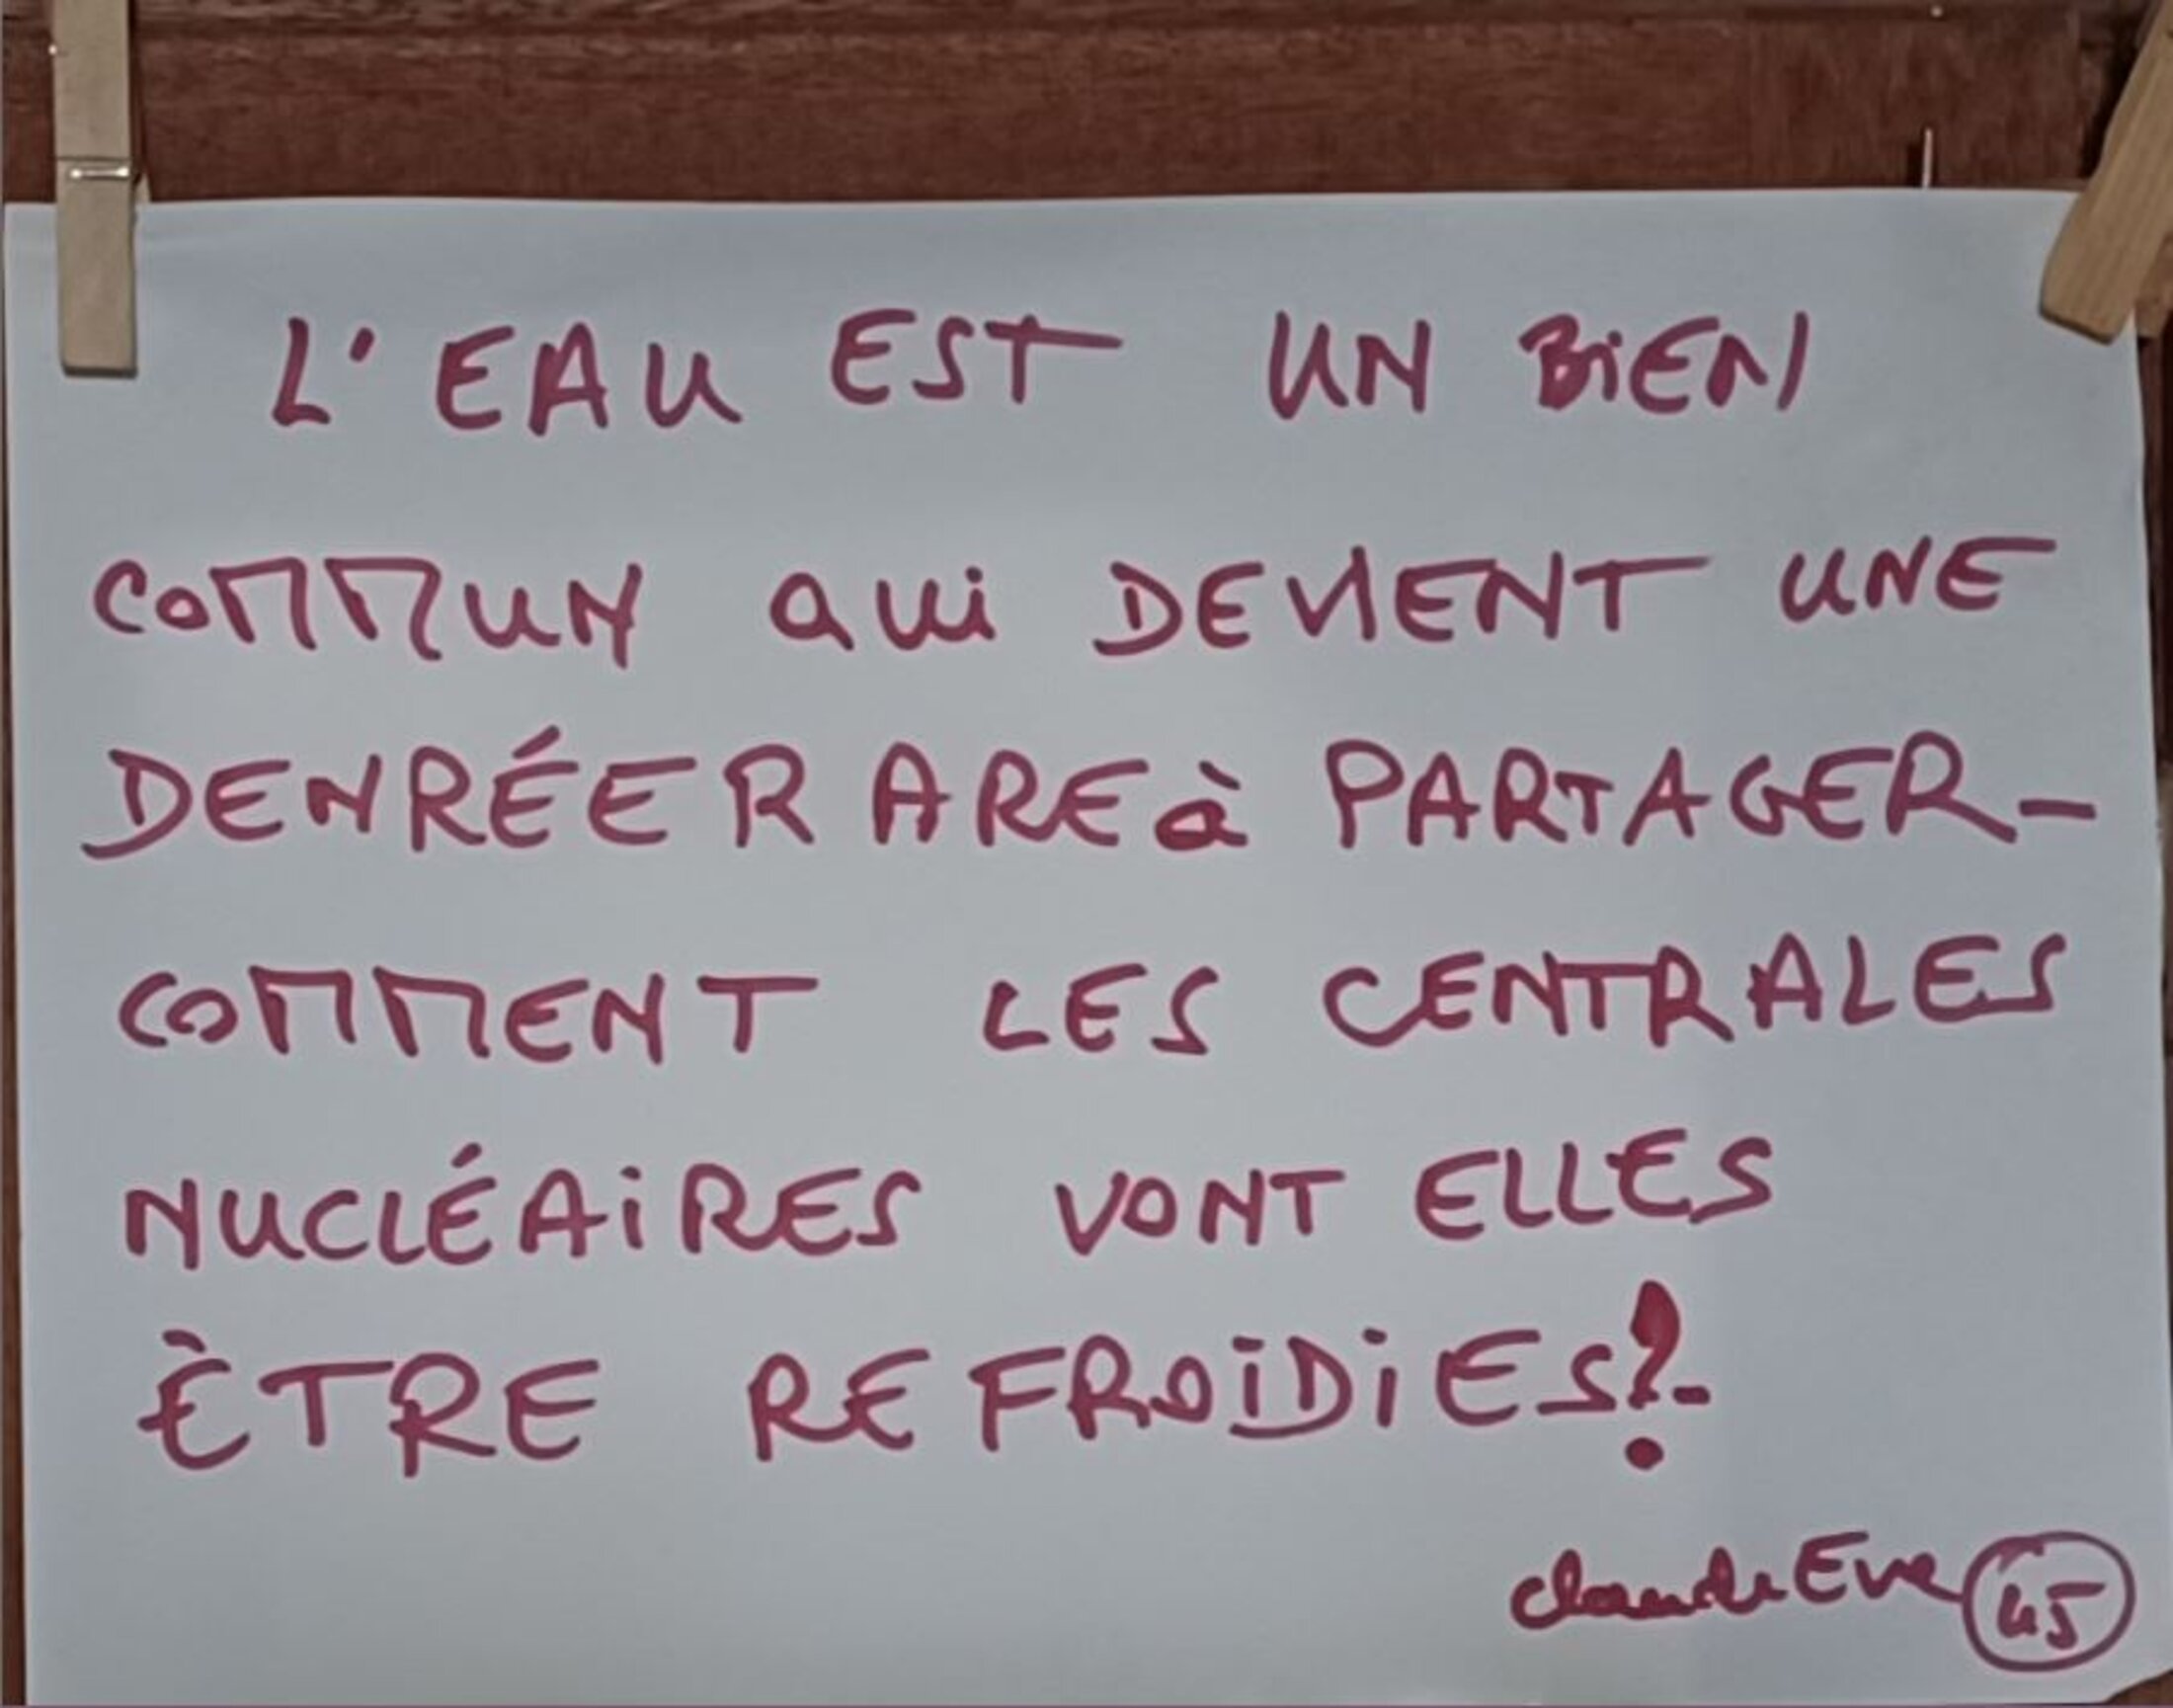 L'EAU EST UN BIEN
COMMUN QUI DEVIENT UNE
DENRÉE RARE à PARTAGER-
COMMENT LES CENTRALES
NUCLÉAIRES VONT ELLES
ÈTRE REFROIDIES?-
Claude Eve 45